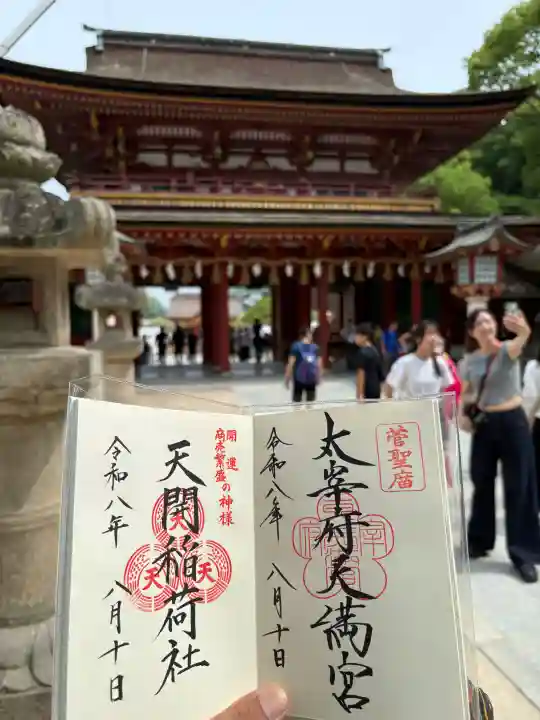 菅聖廟
太宰府天満宮
令和八年 八月十日
開運
商売繁盛の神様
天開稲荷社
天
天
天
令和八年 八月十日